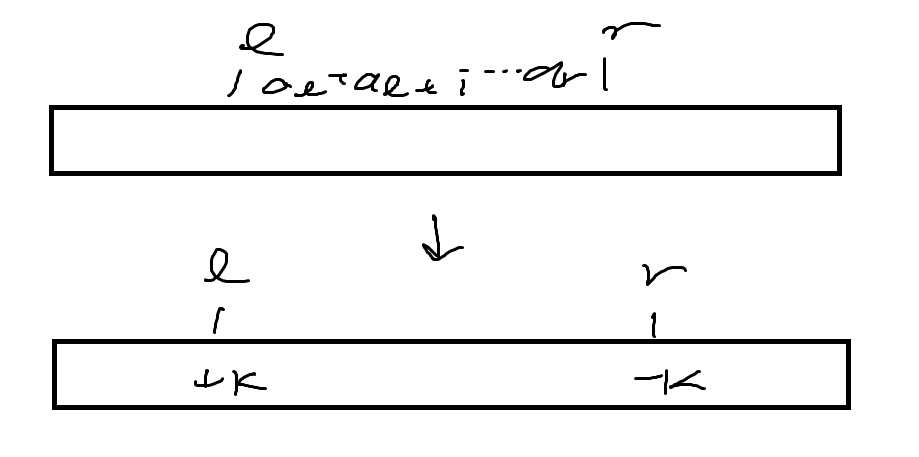 l r
a_l + a_{l+1} ... a_r
l r
+k -k